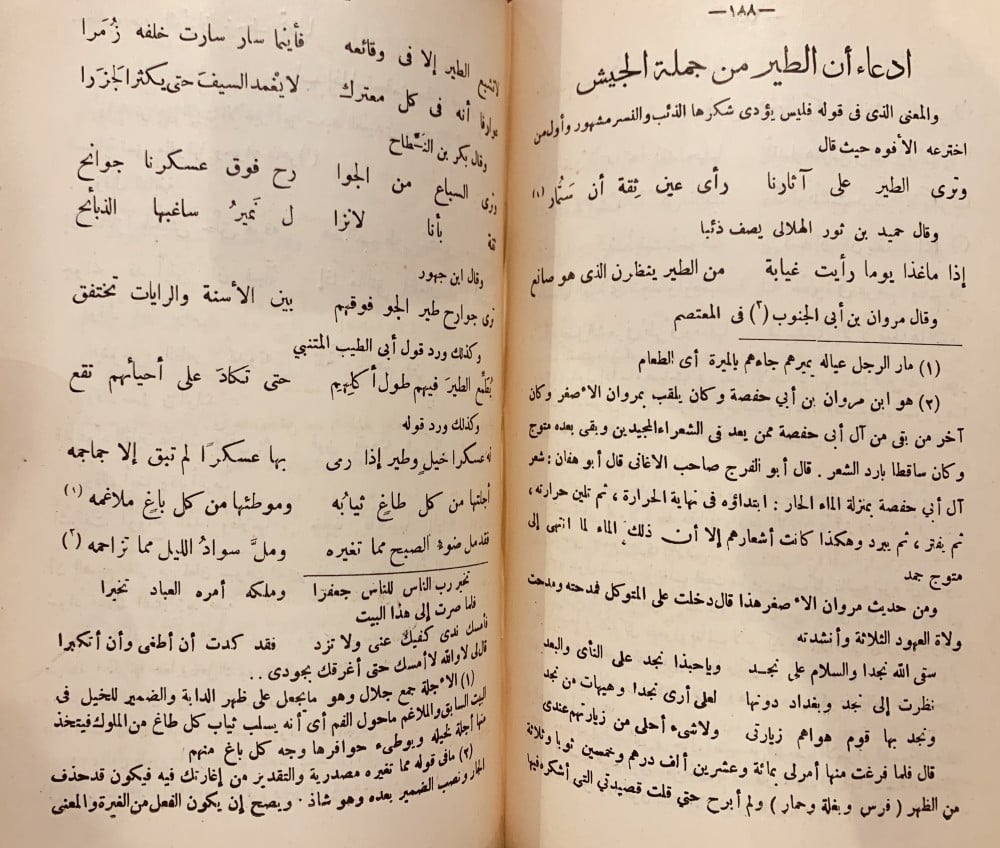 —١٨٨—
ادعاء أن الطير من جملة الجيش
والمعنى الذى فى قوله فليس يؤدى شكرها الذئب والنسر مشهور وأول من
اخترعه الأفوه حيث قال
وترى الطير على آثارنا رأى عين ثِقة أن سَتُمار (١)
وقال حميد بن ثور الهلالى يصف ذئبا
إذا ماغذا يوما رأيت غيابة من الطير ينظرن الذى هو صانع
وقال مروان بن أبى الجنوب (٢) فى المعتصم
(١) مار الرجل عياله يميرهم جاءهم بالميرة أى الطعام
(٢) هو ابن مروان بن أبي حفصة وكان يلقب بمروان الاصغر وكان
آخر من بقى من آل أبى حفصة ممن يعد فى الشعراء المجيدين وبقى بعده متوج
وكان ساقطا بارد الشعر . قال أبو الفرج صاحب الاغانى قال أبو هفان : شعر
آل أبي حفصة بمنزلة الماء الحار : ابتداؤه فى نهاية الحرارة ، ثم تلين حرارته ،
ثم يفتر ، ثم يبرد وهكذا كانت أشعارهم إلا أن ذلك الماء لما انتهى إلى
متوج جمد
ومن حديث مروان الاصغر هذا قال دخلت على المتوكل فمدحته ومدحت
ولاة العهود الثلاثة وأنشدته
سقى الله نجدا والسلام على نجد وياحبذا نجد على النأى والبعد
نظرت إلى نجد وبغداد دونها لعلى أرى نجدا وهيهات من نجد
ونجد بها قوم هواهم زيارتى ولاشىء أحلى من زيارتهم عندى
قال فلما فرغت منها أمر لى بمائة وعشرين ألف درهم وخمسين ثوبا وثلاثة
من الظهر ( فرس وبغلة وحمار ) ولم أبرح حتي قلت قصيدتي التى أشكره فيها
لاتشبع الطير إلا فى وقائعه فأينما سار سارت خلفه زُمَرا
عوارفا أنه فى كل معترك لايُغْمد السيفَ حتى يكثر الجَزَرا
وقال بكر بن النَّطاح
وترى السباع من الجوا رح فوق عسكرنا جوانح
ثقة بأنا لانزا ل نَميرُ ساغبها الذبائح
وقال ابن جهور
ترى جوارح طير الجو فوقهم بين الأسنة والرايات تختفق
وكذلك ورد قول أبى الطيب المتنبى
يُطَمِّع الطيرَ فيهم طول أكلِهِم حتى تكادَ على أحيائهم تقع
وكذلك ورد قوله
له عسكرا خيلٍ وطير إذا رمى بها عسكرًا لم تبق إلا جماجمه
أجلتها من كل طاغٍ ثيابُه وموطئها من كل باغٍ ملاغمه (١)
فقد مل ضوءُ الصبح مما تغيره وملَّ سوادُ الليل مما تزاحمه (٢)
تخير رب الناس للناس جعفرا وملكه أمره العباد تخيرا
فلما صرت إلى هذا البيت
فأمسك ندى كفيك عنى ولا تزد فقد كدت أن أطغى وأن أتكبرا
قال لى لا والله لا أمسك حتى أغرقك بجودى . .
(١) الاجلة جمع جلال وهو مايجعل على ظهر الدابة والضمير للخيل فى
البيت السابق والملاغم ماحول الفم أى أنه يسلب ثياب كل طاغ من الملوك فيتخذ
منها أجلة لخيله ويوطىء حوافرها وجه كل باغ منهم
(٢) مافى قوله مما تغيره مصدرية والتقدير من إغارتك فيه فيكون قد حذف
الجار ونصب الضمير بعده وهو شاذ . ويصح إن يكون الفعل من الغيرة والمعنى